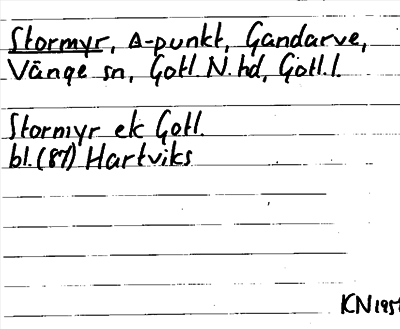 Stormyr, Δ-punkt, Gandarve,
Vänge sn, Gotl N. hd, Gotl. l.
Stormyr ek Gotl.
bl. (87) Hartviks